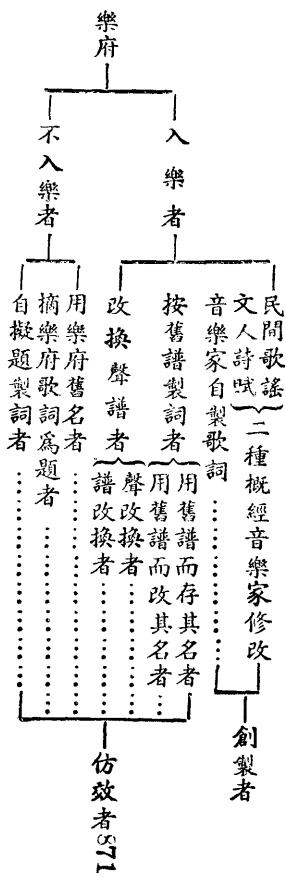 樂府
入樂者
不入樂者
民間歌謠
文人詩賦
二種概經音樂家修改
音樂家自製歌詞
按舊譜製詞者
用舊譜而存其名者
用舊譜而改其名者
改換聲譜者
聲改換者
譜改換者
用樂府舊名者
摘樂府歌詞為題者
自擬題製詞者
創製者
仿效者871